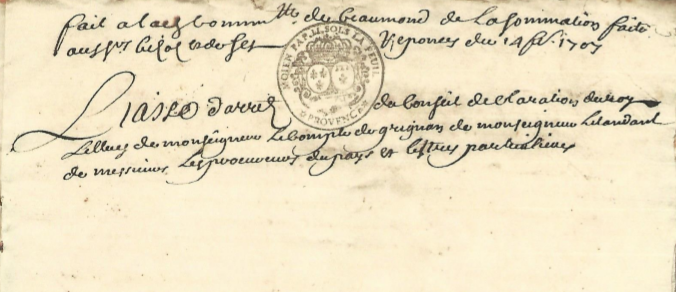 fait a la commte de beaumond de la sommation faitte
aus srs et de ses Reponces du 14 fbr 1707
MOYEN PAP. II. SOLS LA FEUIL
PROVENCE
Liasse d'arrez du Conseil declaration du roy
Lettres de monseigneur Le Compte de grignan de monseigneur Lintandant
de messieurs Les procureurs du pays et lettres particulieres